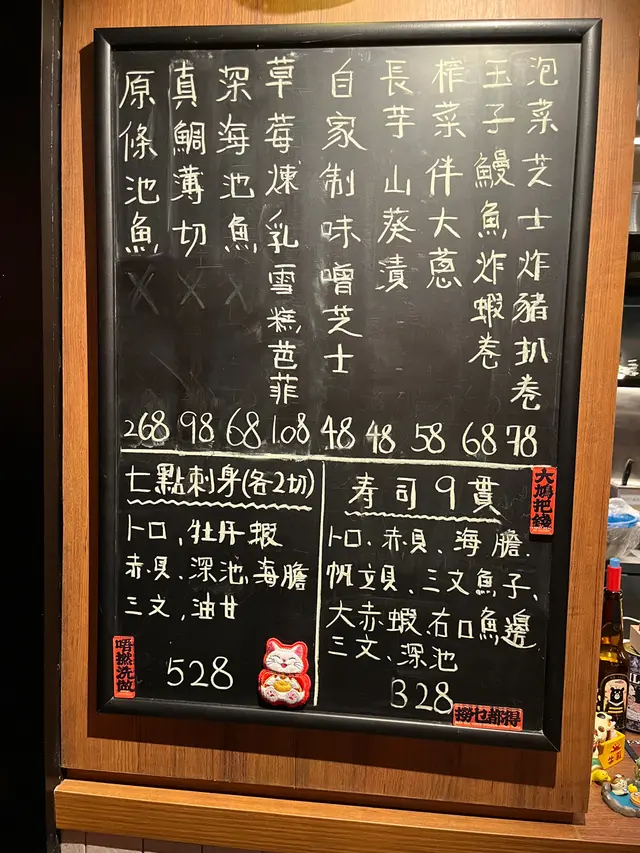 泡菜芝士炸豬扒卷 78
玉子鰻魚炸蝦卷 68
榨菜伴大蔥 58
長芋山葵漬 48
自家制味噌芝士 48
草莓煉乳雪糕芭菲 108
深海池魚 XX 68
真鯛薄切 X 98
原條池魚 XX 268
七點刺身(各2切)
トロ、牡丹蝦
赤貝、深池、海膽
三文、油甘
528
寿司9貫
トロ、赤貝、海膽、
帆立貝、三文魚子、
大赤蝦、右口魚邊
三文、深池
328
大鴻把鐘
唔撚洗做
撈乜都得